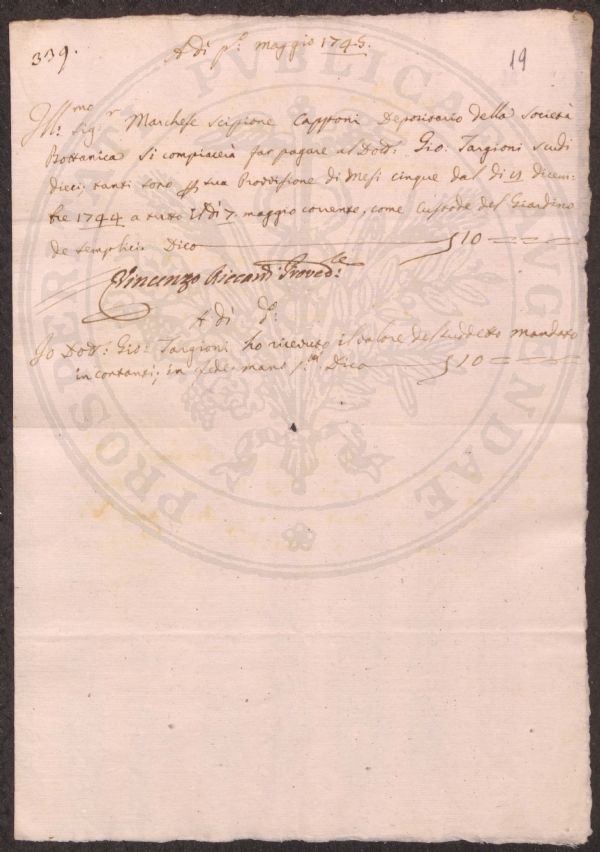 339.
A dì p.º maggio 1745.
19
Ill.mo Sig.r Marchese Scipione Capponi Depositario della Società
Bottanica si compiacerà far pagare al Dott: Gio. Targioni scudi
dieci, tanti sono p sua Provvisione di Mesi cinque dal dì dicem-
bre 1744 a tutto il dì 7 maggio corrente, come Custode del Giardino
de semplici. Dico ∫10
Vincenzo Riccardi Proved.re
A dì d.º
Io Dott: Gio: Targioni ho ricevuto il valore del suddetto mandato
in contanti; in fede mano p.a Dico ∫10
PROSPERITATI PVBLICAE AVGENDAE